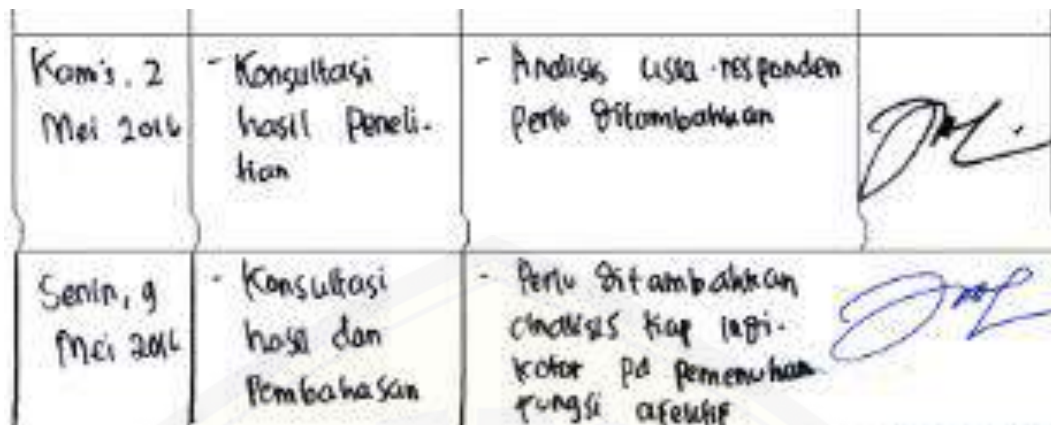 Kamis, 2
Mei 2016
- Konsultasi
hasil Peneli-
tian
- Analisis usia responden
Perlu ditambahkan
Senin, 9
Mei 2016
- Konsultasi
hasil dan
Pembahasan
- Perlu ditambahkan
analisis tiap indi-
kator pd pemenuhan
fungsi afektif